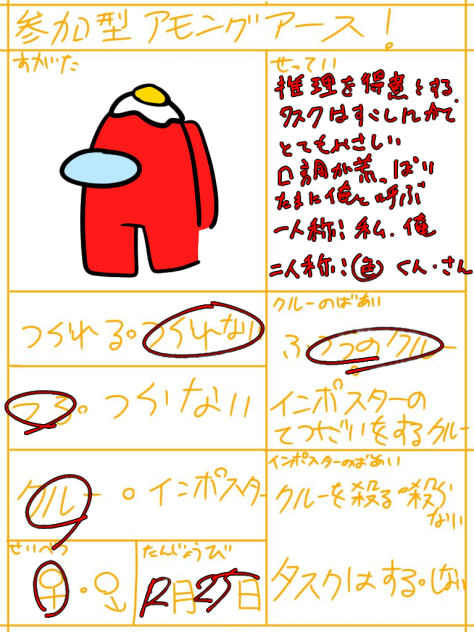 参加型 アモングアース！
すがた
せってい
推理を得意とする。
タスクはすこしにがて
とてもやさしい
口調が荒っぽい
たまに俺と呼ぶ
一人称：私、俺
二人称：(色)くん・さん
つくれる。つくれない
クルーのばあい
ふつうのクルー
つる。つらない
インポスターの
てつだいをするクルー
クルー。インポスター
インポスターのばあい
クルーを殺る・殺ら
ない
せいべつ
♀・♂
たんじょうび
12月25日
タスクはする。しない